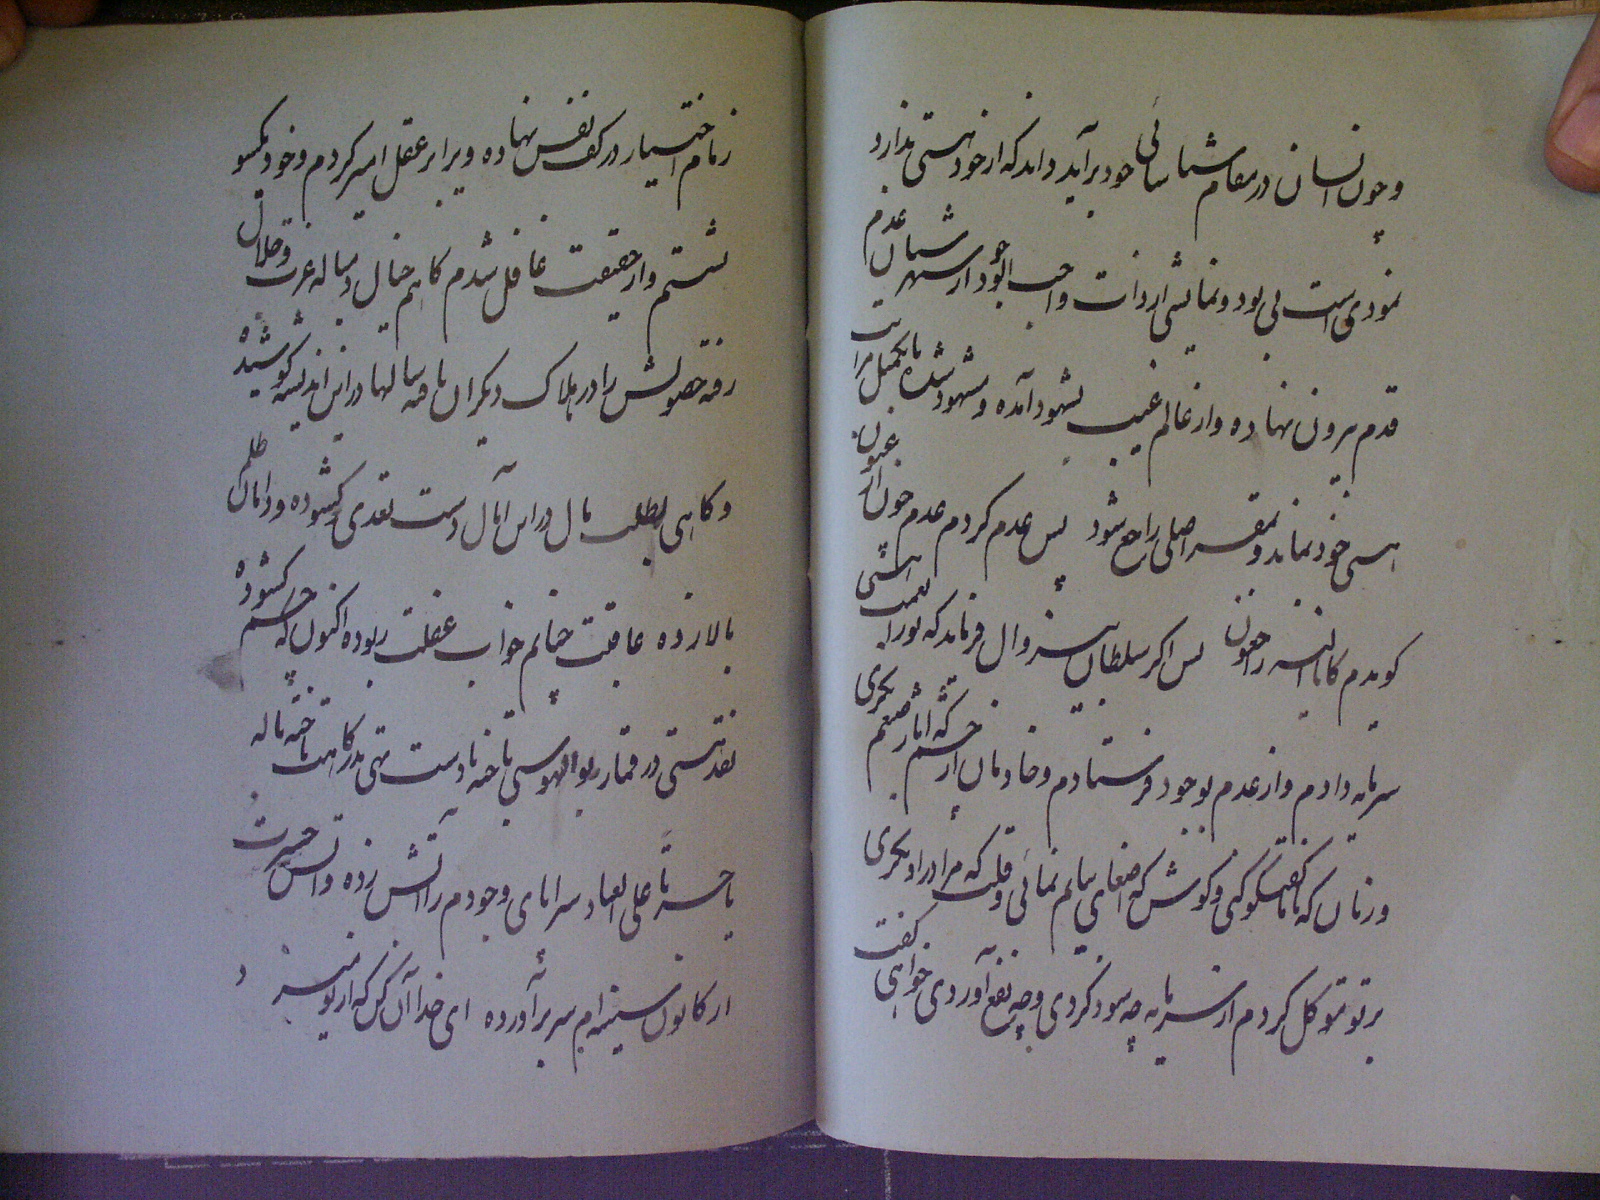 و چون انسان در مقام شناسائی خود برآید داند که از خود هستی ندارد
نمودی است بی بود و نمایشی از ذات واجب الوجود از شهرستان عدم
قدم بیرون نهاده و از عالم غیب بشهود آمده و مشهود شده تا بتکمیل مراتب
هستی خود نماید و بمقر اصلی راجع شود پس عدم گردم عدم چون ارغنون
گویدم کانا الیه راجعون پس اگر سلطان بیزوال فرماید که تو را نعمت هستی
سرمایه دادم و از عدم بوجود فرستادم و خادمان از چشم که آثار صنعم نگری
و زبان که با ما گفتگو کنی و گوش که اصغای پیامم نمائی و قلب که مرا در او نگری
بر تو موکل کردم از سرمایه چه سود کردی و چه نفع آوردی خواهی گفت
زمام اختیار در کف نفس نهاده و برابر عقل امیر کردم و خود یکسو
نشستم و از حقیقت غافل شدم گاهم خیال
رفته حصولش را در هلاک دیگران یافته سالها در این اندیشه کوشیده
و گاهی بطلب مال در این آمال دست تعدی گشوده و دامان ظلم
بالا زده عاقبت چنانم خواب غفلت ربوده اکنون که چشم گشوده
نقد هستی در قمار بوالهوسی باخته با دست تهی بدرگاهت تاخته ناله
یا حسرتا علی العباد سراپای وجودم را آتش زده و آتش حسرت
از کانون سینه ام سر برآورده ای خدا آن کن که از تو میسزد